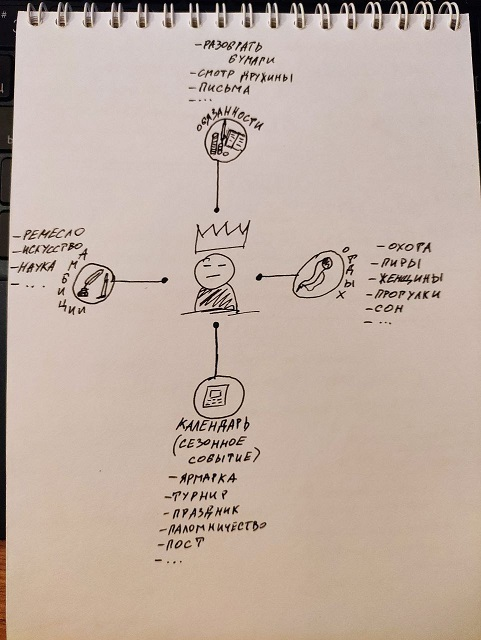 - РАЗОБРАТЬ
БУМАГИ
- СМОТР ДРУЖИНЫ
- ПИСЬМА
- ...
ОБЯЗАННОСТИ
- РЕМЕСЛО
- ИСКУССТВО
- НАУКА
- ...
АМБИЦИИ
ОТДЫХ
- ОХОТА
- ПИРЫ
- ЖЕНЩИНЫ
- ПРОГУЛКИ
- СОН
- ...
КАЛЕНДАРЬ
(СЕЗОННОЕ
СОБЫТИЕ)
- ЯРМАРКА
- ТУРНИР
- ПРАЗДНИК
- ПАЛОМНИЧЕСТВО
- ПОСТ
- ...